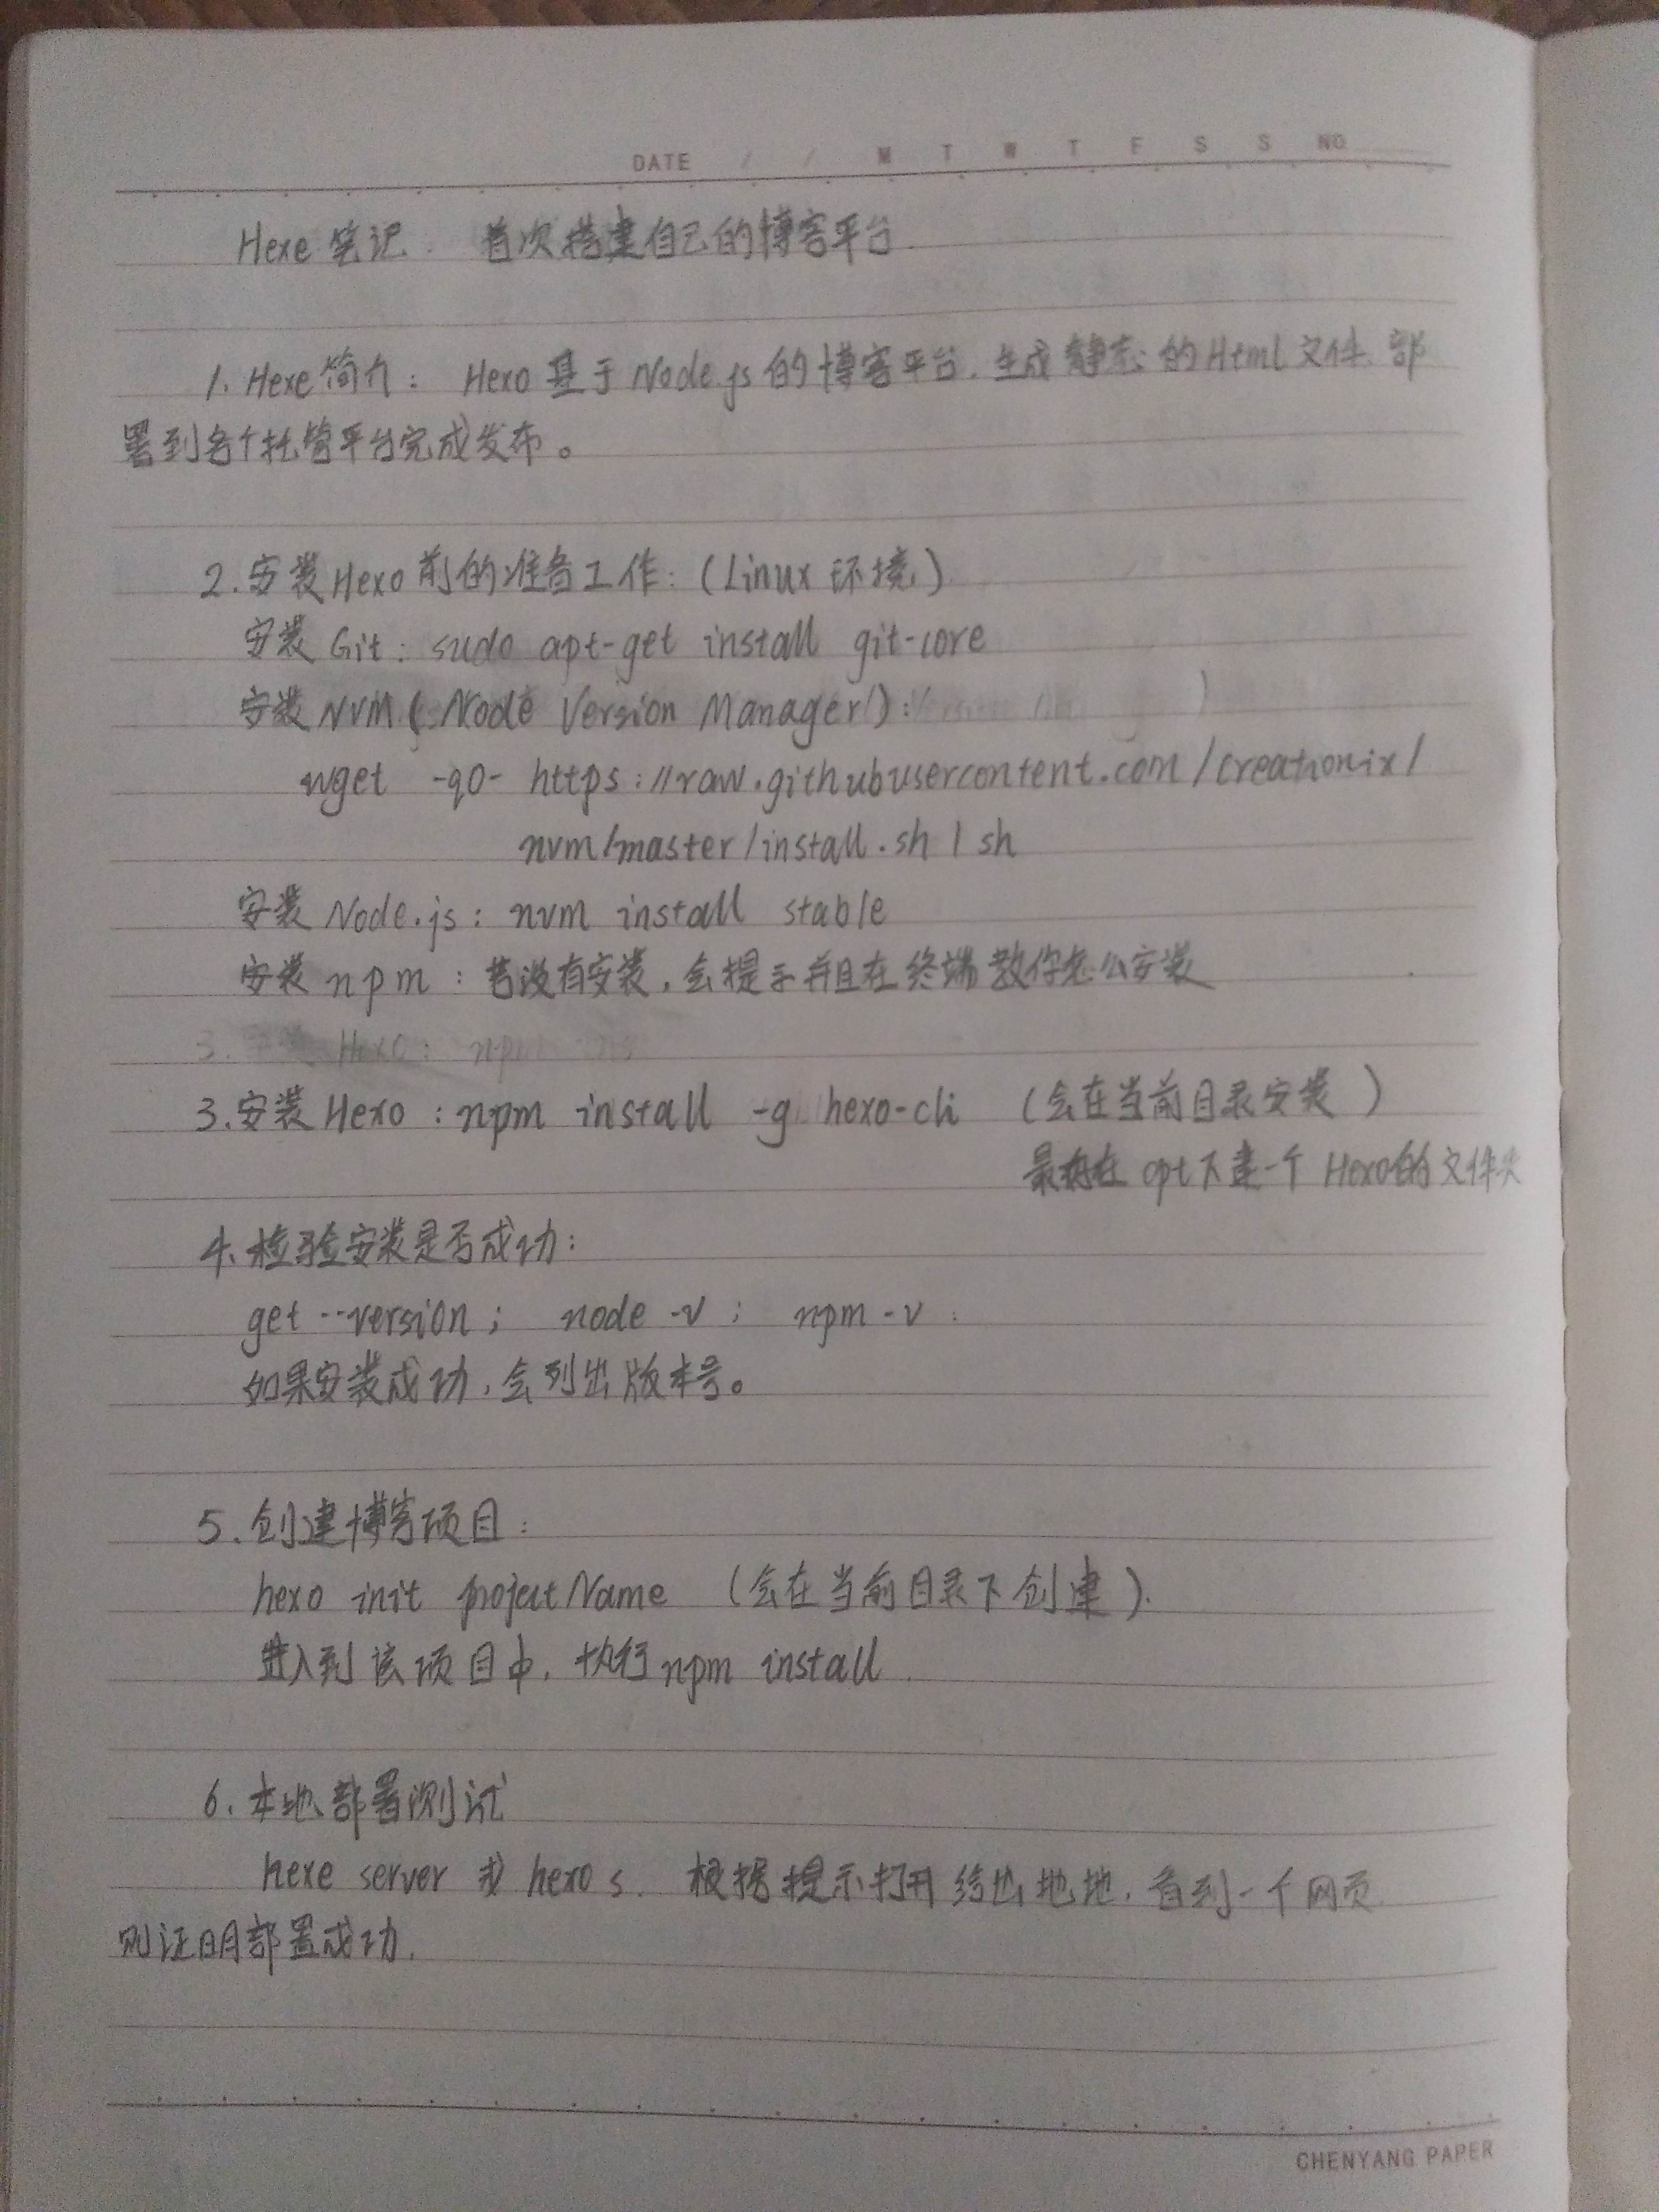 DATE / / M T W T F S S NO.
Hexe 笔记. 首次搭建自己的博客平台.
1. Hexe简介: Hexo基于Node.js的博客平台,生成静态的Html文件.部
署到各个托管平台完成发布。
2.安装Hexo前的准备工作:(Linux环境)
安装Git: sudo apt-get install git-core
安装NVM(Node Version Manager):
wget -qO- https://raw.githubusercontent.com/creationix/
nvm/master/install.sh | sh
安装Node.js: nvm install stable
安装npm: 若没有安装,会提示并且在终端教你怎么安装
3. 安装 Hexo: npm ins
3.安装Hexo: npm install -g hexo-cli (会在当前目录安装)
最好在opt下建一个Hexo的文件夹
4.检验安装是否成功:
get --version; node -v; npm -v.
如果安装成功,会列出版本号。
5.创建博客项目:
hexo init projectName (会在当前目录下创建).
进入到该项目中,执行npm install.
6.本地部署测试
hexe server 或 hexo s. 根据提示打开给出地地,看到一个网页
则证明部署成功.
CHENYANG PAPER